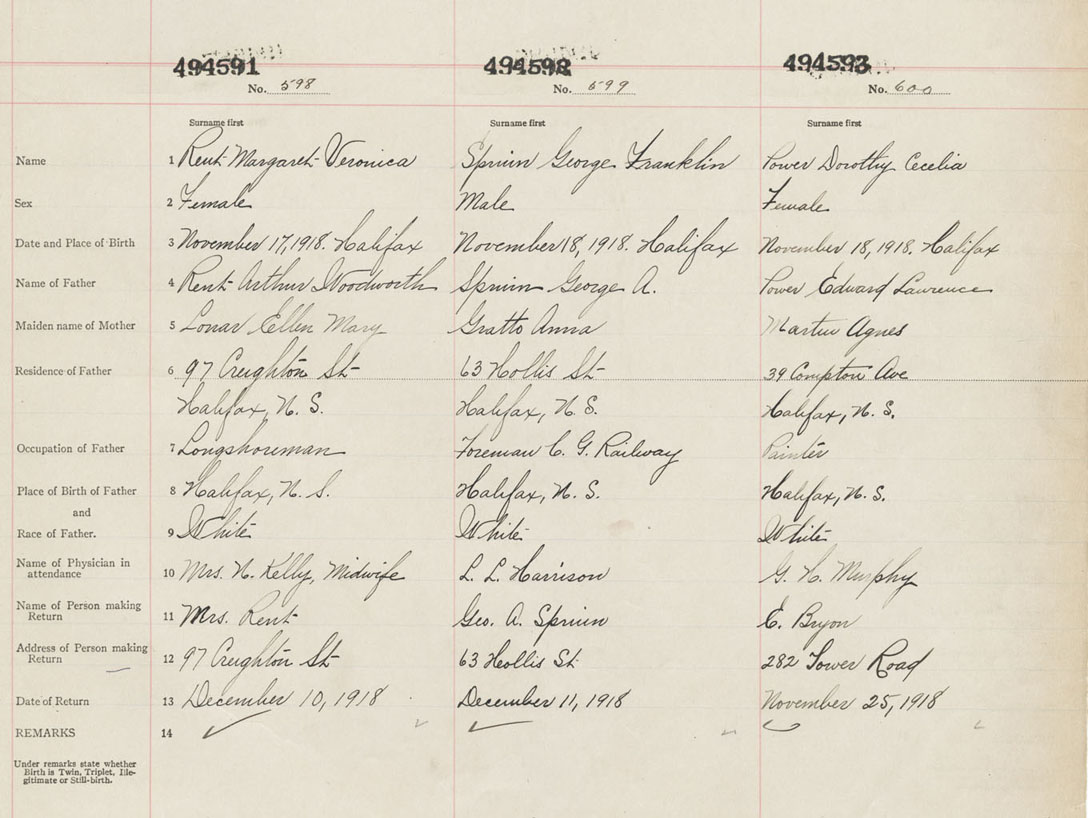 494591 494592 494593
No. 598 No. 599 No. 600
Surname first Surname first Surname first
Name 1 Rent Margaret Veronica Spruin George Franklin Power Dorothy Cecelia
Sex 2 Female Male Female
Date and Place of Birth 3 November 17, 1918. Halifax November 18, 1918. Halifax November 18, 1918. Halifax
Name of Father 4 Rent Arthur Woodworth Spruin George A. Power Edward Lawrence
Maiden name of Mother 5 Lonar Ellen Mary Gratto Anna Martin Agnes
Residence of Father 6 97 Creighton St 63 Hollis St 39 Compton Ave
Halifax, N. S. Halifax, N. S. Halifax, N. S.
Occupation of Father 7 Longshoreman Foreman C. G. Railway Painter
Place of Birth of Father 8 Halifax, N. S. Halifax, N. S. Halifax, N. S.
and
Race of Father. 9 White White White
Name of Physician in
attendance 10 Mrs. N. Kelly, Midwife L. L. Harrison G. H. Murphy
Name of Person making
Return 11 Mrs. Rent Geo. A. Spruin E. Bryon
Address of Person making
Return 12 97 Creighton St 63 Hollis St. 282 Tower Road
Date of Return 13 December 10, 1918 December 11, 1918 November 25, 1918
REMARKS 14
Under remarks state whether
Birth is Twin, Triplet, Ille-
gitimate or Still-birth.